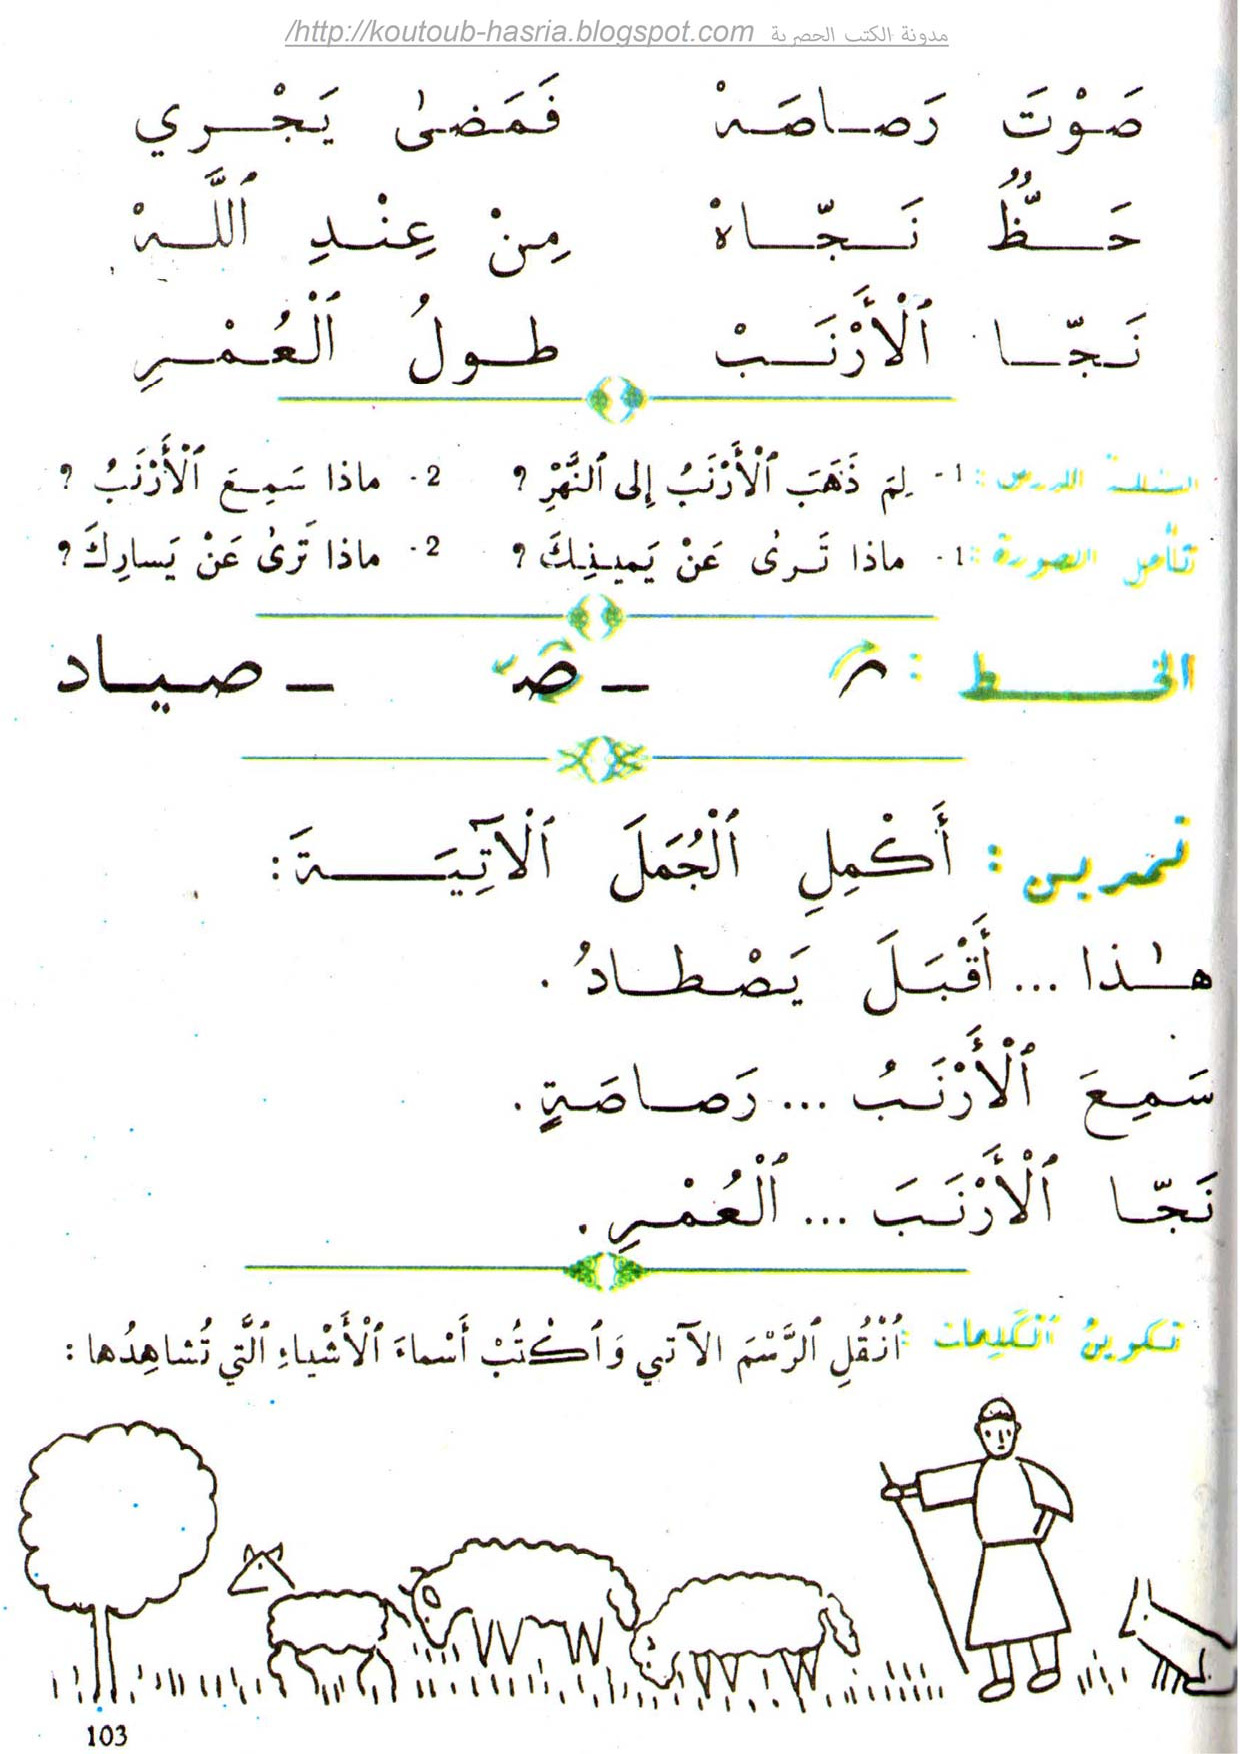 http://koutoub-hasria.blogspot.com/ مدونة الكتب الحصرية
صَوْتَ رَصاصَهْ فَمَضىٰ يَجْري
حَظٌّ نَجّاهْ مِنْ عِنْدِ ٱللَّهْ
نَجّا ٱلْأَرْنَبْ طولُ ٱلْعُمْرِ
أسئلة الدرس : 1- لِمَ ذَهَبَ ٱلْأَرْنَبُ إِلى ٱلنَّهْرِ ؟ 2- ماذا سَمِعَ ٱلْأَرْنَبُ ؟
تأمل الصورة : 1- ماذا تَرىٰ عَنْ يَمينِكَ ؟ 2- ماذا تَرىٰ عَنْ يَسارِكَ ؟
الخط : ـ صـ ـ صياد
تمرين : أَكْمِلِ ٱلْجُمَلَ ٱلْآتِيَةَ :
هٰذا ... أَقْبَلَ يَصْطادُ .
سَمِعَ ٱلْأَرْنَبُ ... رَصاصَةٍ .
نَجّا ٱلْأَرْنَبَ ... ٱلْعُمْرِ .
تكوينُ ٱلكَلِمات : ٱنْقُلِ ٱلرَّسْمَ الآتي وَٱكْتُبْ أَسْماءَ ٱلْأَشْياءِ ٱلَّتي تُشاهِدُها :
103